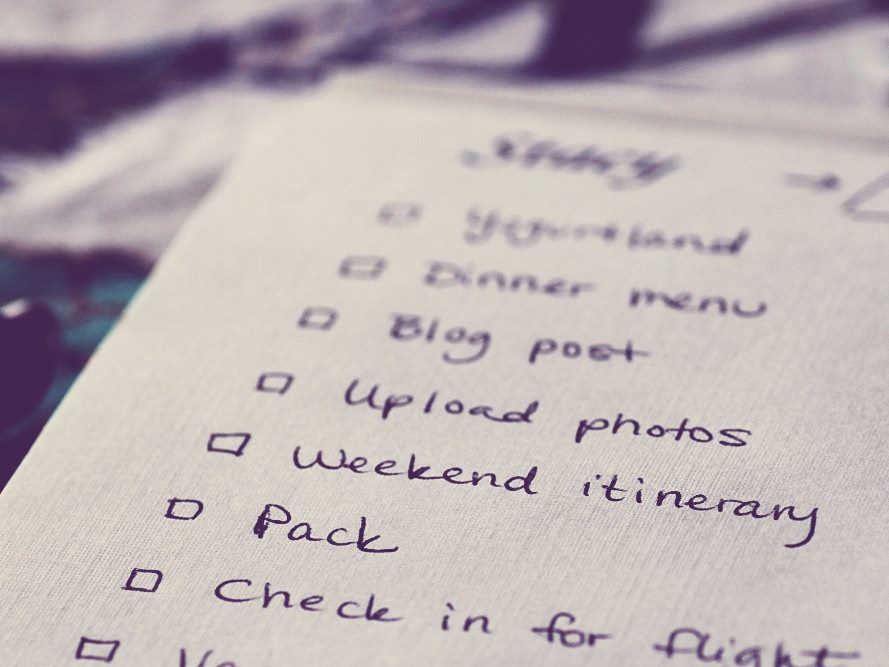 Yogurtland
Dinner menu
Blog post
Upload photos
Weekend itinerary
Pack
Check in for flight